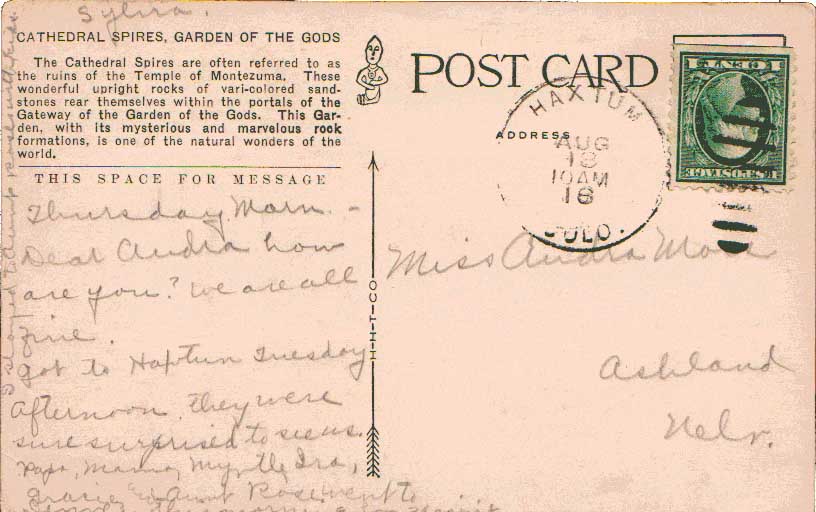 Sylvia.
CATHEDRAL SPIRES, GARDEN OF THE GODS
The Cathedral Spires are often referred to as
the ruins of the Temple of Montezuma. These
wonderful upright rocks of vari-colored sand-
stones rear themselves within the portals of the
Gateway of the Garden of the Gods. This Gar-
den, with its mysterious and marvelous rock
formations, is one of the natural wonders of the
world.
THIS SPACE FOR MESSAGE
Thursday Morn. -
Dear Audra how
are you? We are all
fine.
got to Haxtun Tuesday
afternoon. they were
sure surprised to see us.
Papa, Mama, Myrtle, Ira,
Gracie and Aunt Rose went to
this morning
POST CARD
ADDRESS
HAXTUM
AUG
18
10AM
16
COLO.
1 CENT 1
U.S. POSTAGE
H-H-T-CO
Miss Audra
Ashland
Nebr.